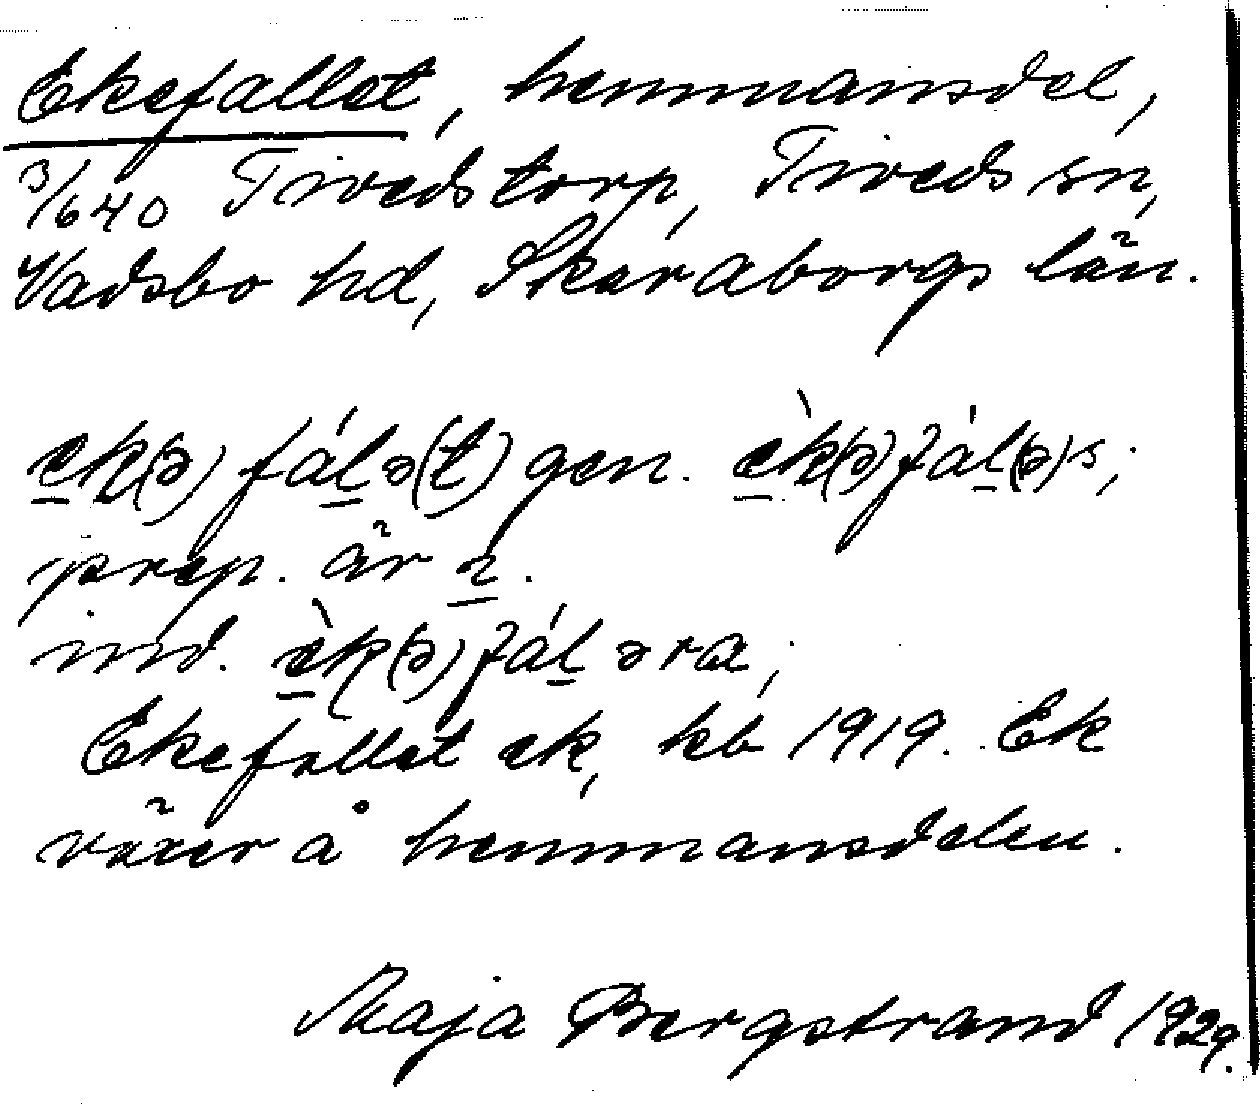 Ekefallet, hemmansdel,
3/640 Tivedstorp, Tiveds sn,
Vadsbo hd, Skaraborgs län.
ek(ə)fálə(t) gen. èk(ə)fál(ə)s;
prep. är
inv. èk(ə)fáləra;
Ekefallet ek, kb 1919. Ek
växer å hemmansdelen.
Maja Bergstrand 1929.